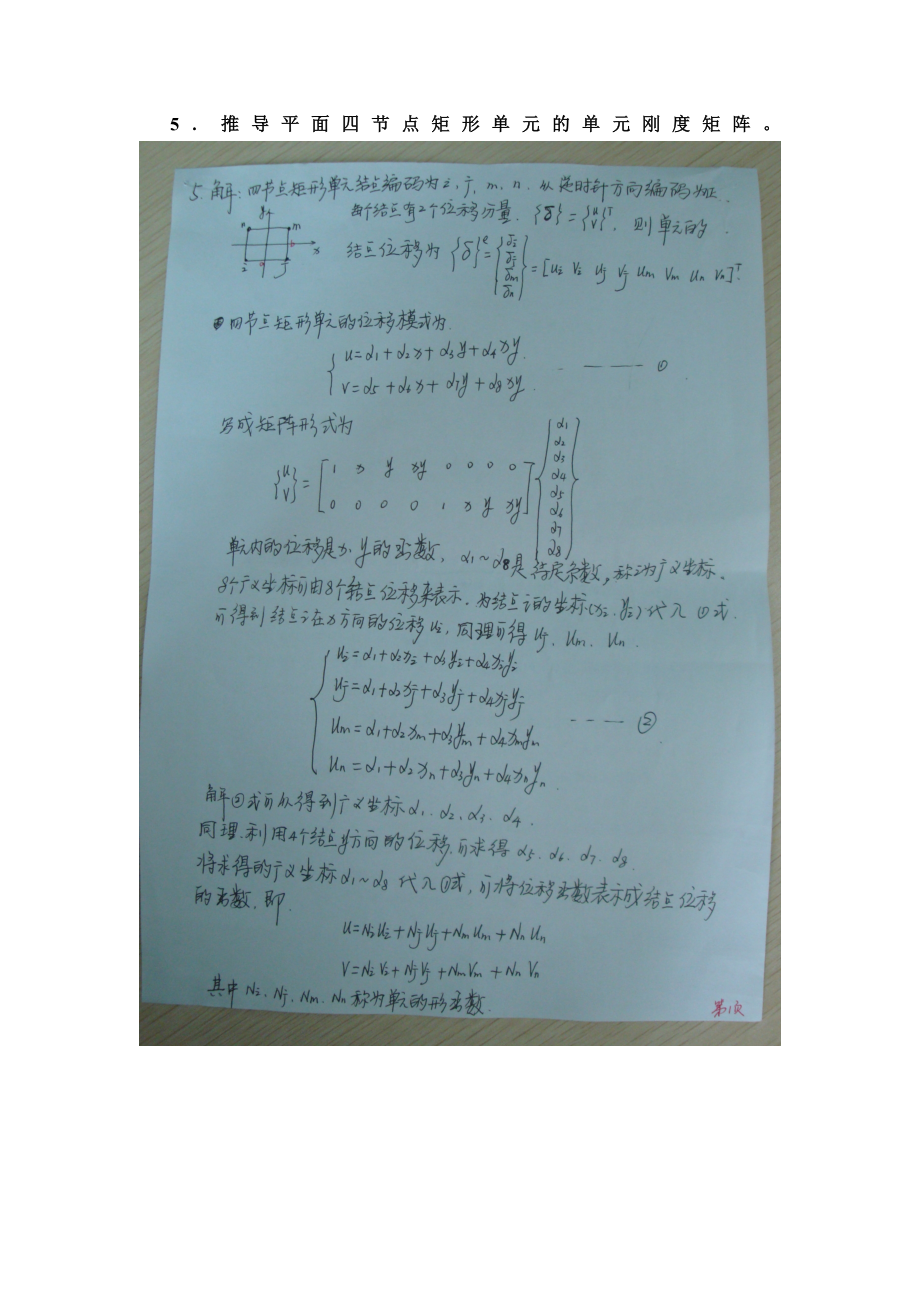 5．推导平面四节点矩形单元的单元刚度矩阵。
5.解：四节点矩形单元结点编码为i、j、m、n. 以逆时针方向编码为正.
y
n m
b x
i a j
每个结点有2个位移分量. {δ}={u v}ᵀ, 则单元的
结点位移为 {δ}ᵉ={δi δj δm δn}=[ui vi uj vj um vm un vn]ᵀ.
四节点矩形单元的位移模式为.
u=α1+α2x+α3y+α4xy.
v=α5+α6x+α7y+α8xy. ——— ①
写成矩阵形式为
{u v}=[1 x y xy 0 0 0 0
0 0 0 0 1 x y xy]{α1 α2 α3 α4 α5 α6 α7 α8}
单元内的位移是x、y的函数, α1~α8是待定系数, 称之为广义坐标.
8个广义坐标可由8个结点位移来表示. 为结点i的坐标(xi、yi)代入①式.
可得到结点i在x方向的位移ui, 同理可得uj、um、un.
ui=α1+α2xi+α3yi+α4xiyi
uj=α1+α2xj+α3yj+α4xjyj
um=α1+α2xm+α3ym+α4xmym --- ②
un=α1+α2xn+α3yn+α4xnyn.
解②式可以得到广义坐标α1、α2、α3、α4.
同理.利用4个结点y方向的位移.可求得α5、α6、α7、α8.
将求得的广义坐标α1~α8代入①式, 可将位移函数表示成结点位移
的函数, 即.
u=Niui+Njuj+Nmum+Nnun
v=Nivi+Njvj+Nmvm+Nnvn
其中Ni、Nj、Nm、Nn称为单元的形函数.
第1页